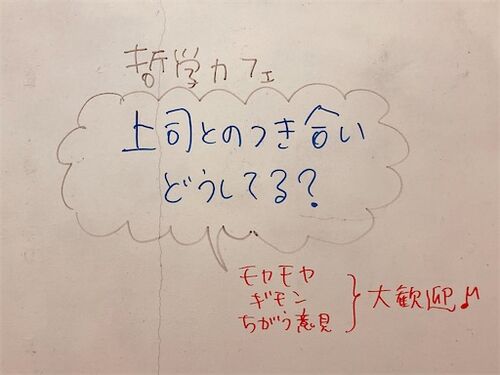 哲学カフェ
上司とのつき合い
どうしてる?
モヤモヤ
ギモン
ちがう意見
大歓迎♪